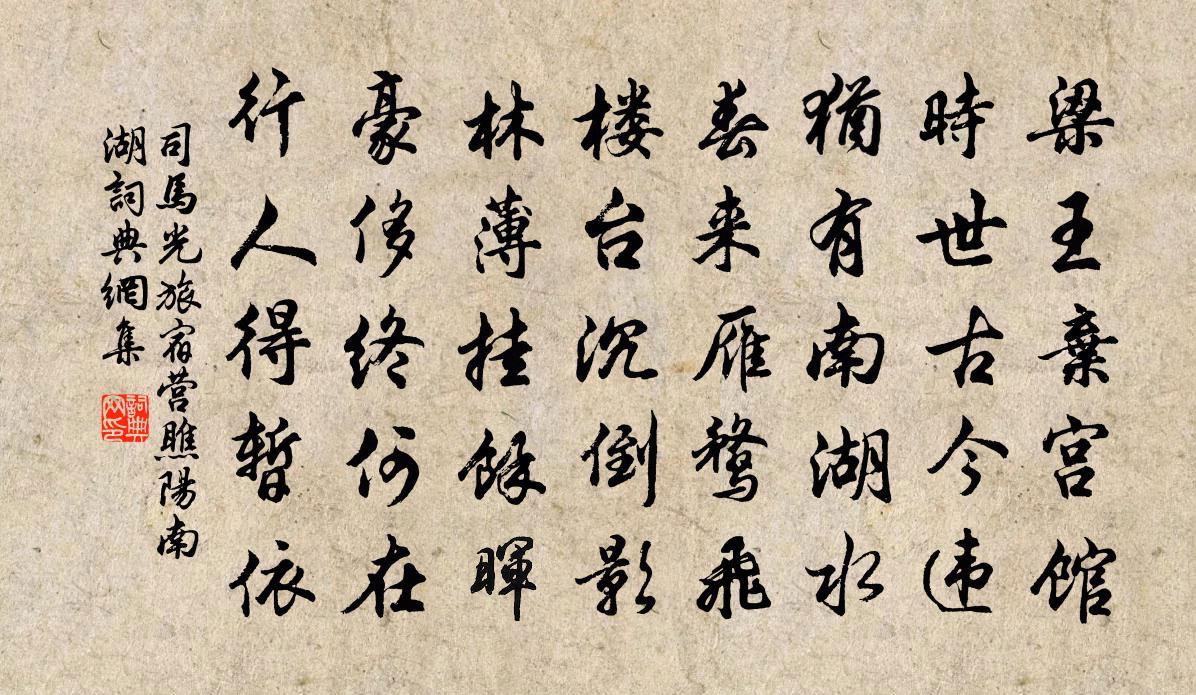 梁王棄宫馆
時世古今违
猶有南湖水
春来雁鶩飛
楼台沉倒影
林薄挂餘暉
豪侈终何在
行人得暫依
司馬光旅宿营瞧陽南
湖詞典網集
詞典网印